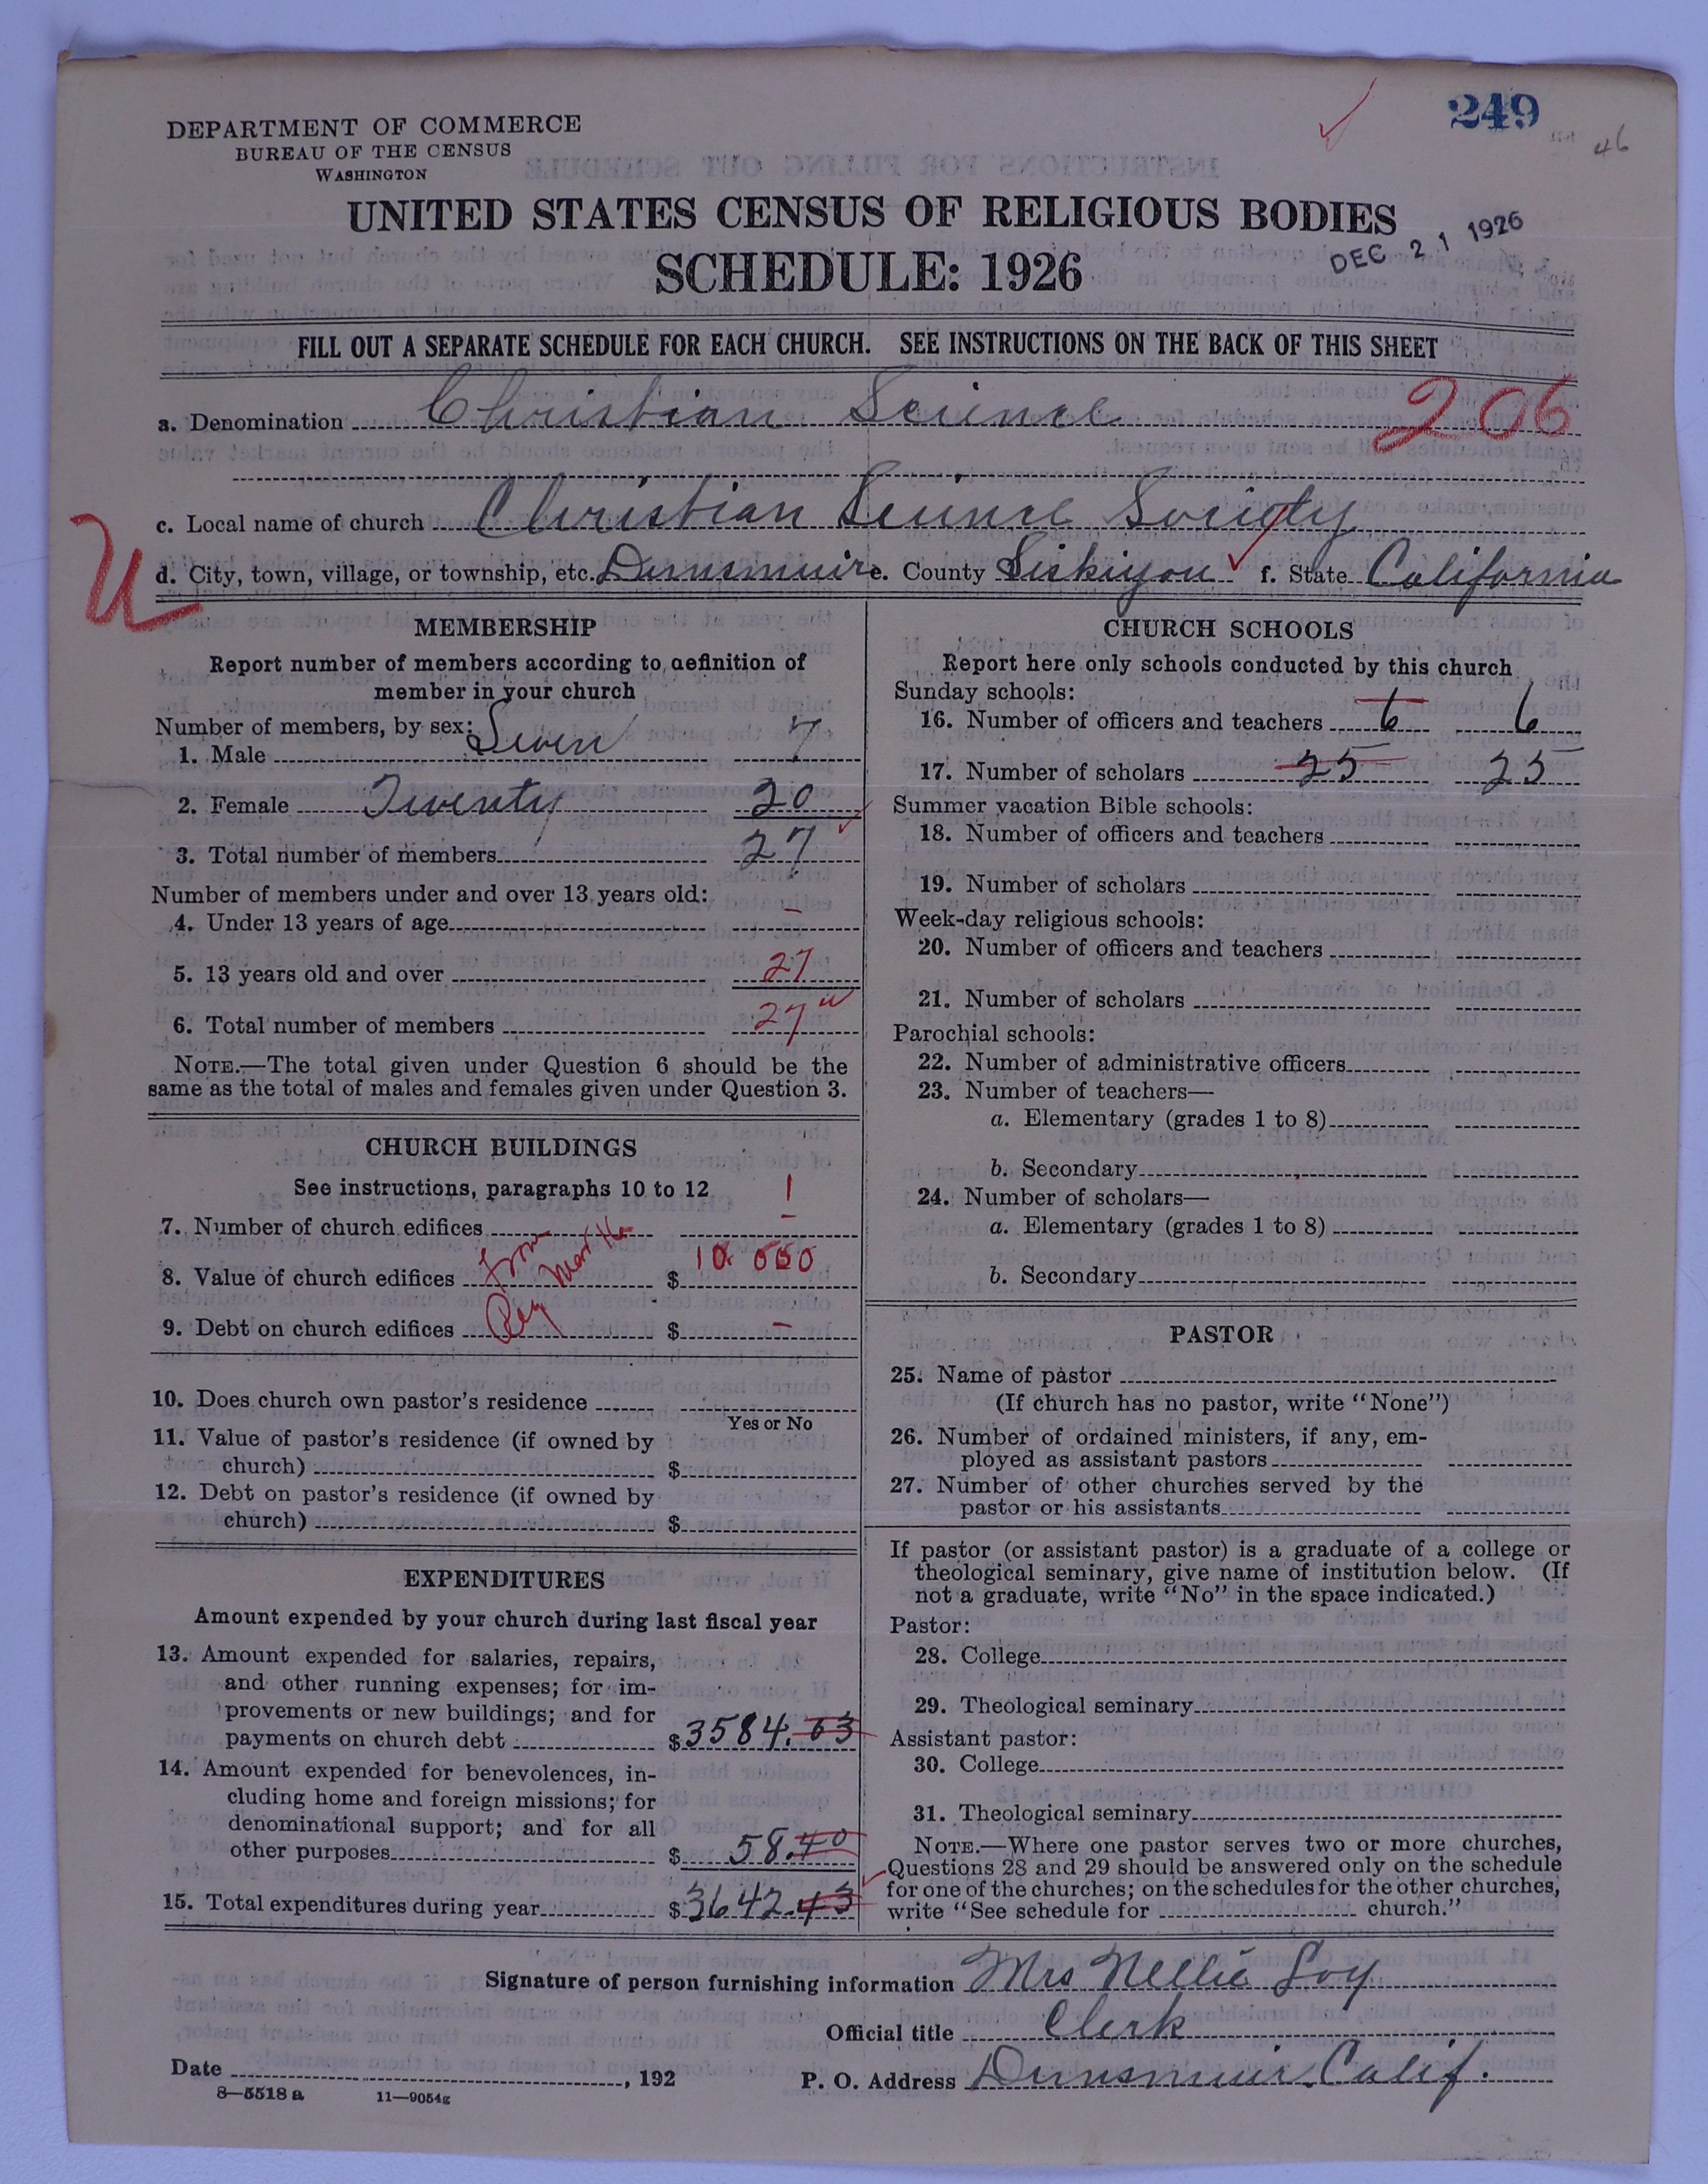 249
46
DEPARTMENT OF COMMERCE
BUREAU OF THE CENSUS
WASHINGTON
UNITED STATES CENSUS OF RELIGIOUS BODIES
DEC 21 1926
SCHEDULE: 1926
FILL OUT A SEPARATE SCHEDULE FOR EACH CHURCH. SEE INSTRUCTIONS ON THE BACK OF THIS SHEET
a. Denomination Christian Science 206
c. Local name of church Christian Science Society
U
d. City, town, village, or township, etc. Dunsmuir e. County Siskiyou f. State California
MEMBERSHIP
Report number of members according to definition of
member in your church
Number of members, by sex:
1. Male Seven 7
2. Female Twenty 20
3. Total number of members 27
Number of members under and over 13 years old:
4. Under 13 years of age -
5. 13 years old and over 27
6. Total number of members 27
NOTE.—The total given under Question 6 should be the
same as the total of males and females given under Question 3.
CHURCH BUILDINGS
See instructions, paragraphs 10 to 12
7. Number of church edifices 1
8. Value of church edifices From $ 10 000
9. Debt on church edifices $ -
10. Does church own pastor's residence
Yes or No
11. Value of pastor's residence (if owned by
church) $
12. Debt on pastor's residence (if owned by
church) $
EXPENDITURES
Amount expended by your church during last fiscal year
13. Amount expended for salaries, repairs,
and other running expenses; for im-
provements or new buildings; and for
payments on church debt $ 3584.03
14. Amount expended for benevolences, in-
cluding home and foreign missions; for
denominational support; and for all
other purposes $ 58.40
15. Total expenditures during year $ 3642.43
CHURCH SCHOOLS
Report here only schools conducted by this church
Sunday schools:
16. Number of officers and teachers 6 6
17. Number of scholars 25 25
Summer vacation Bible schools:
18. Number of officers and teachers
19. Number of scholars
Week-day religious schools:
20. Number of officers and teachers
21. Number of scholars
Parochial schools:
22. Number of administrative officers
23. Number of teachers—
a. Elementary (grades 1 to 8)
b. Secondary
24. Number of scholars—
a. Elementary (grades 1 to 8)
b. Secondary
PASTOR
25. Name of pastor
(If church has no pastor, write "None")
26. Number of ordained ministers, if any, em-
ployed as assistant pastors
27. Number of other churches served by the
pastor or his assistants
If pastor (or assistant pastor) is a graduate of a college or
theological seminary, give name of institution below. (If
not a graduate, write "No" in the space indicated.)
Pastor:
28. College
29. Theological seminary
Assistant pastor:
30. College
31. Theological seminary
NOTE.—Where one pastor serves two or more churches,
Questions 28 and 29 should be answered only on the schedule
for one of the churches; on the schedules for the other churches,
write "See schedule for church."
Signature of person furnishing information Mrs Nellie Loy
Official title Clerk
Date , 192
P. O. Address Dunsmuir Calif.
8—5518 a 11—9054g